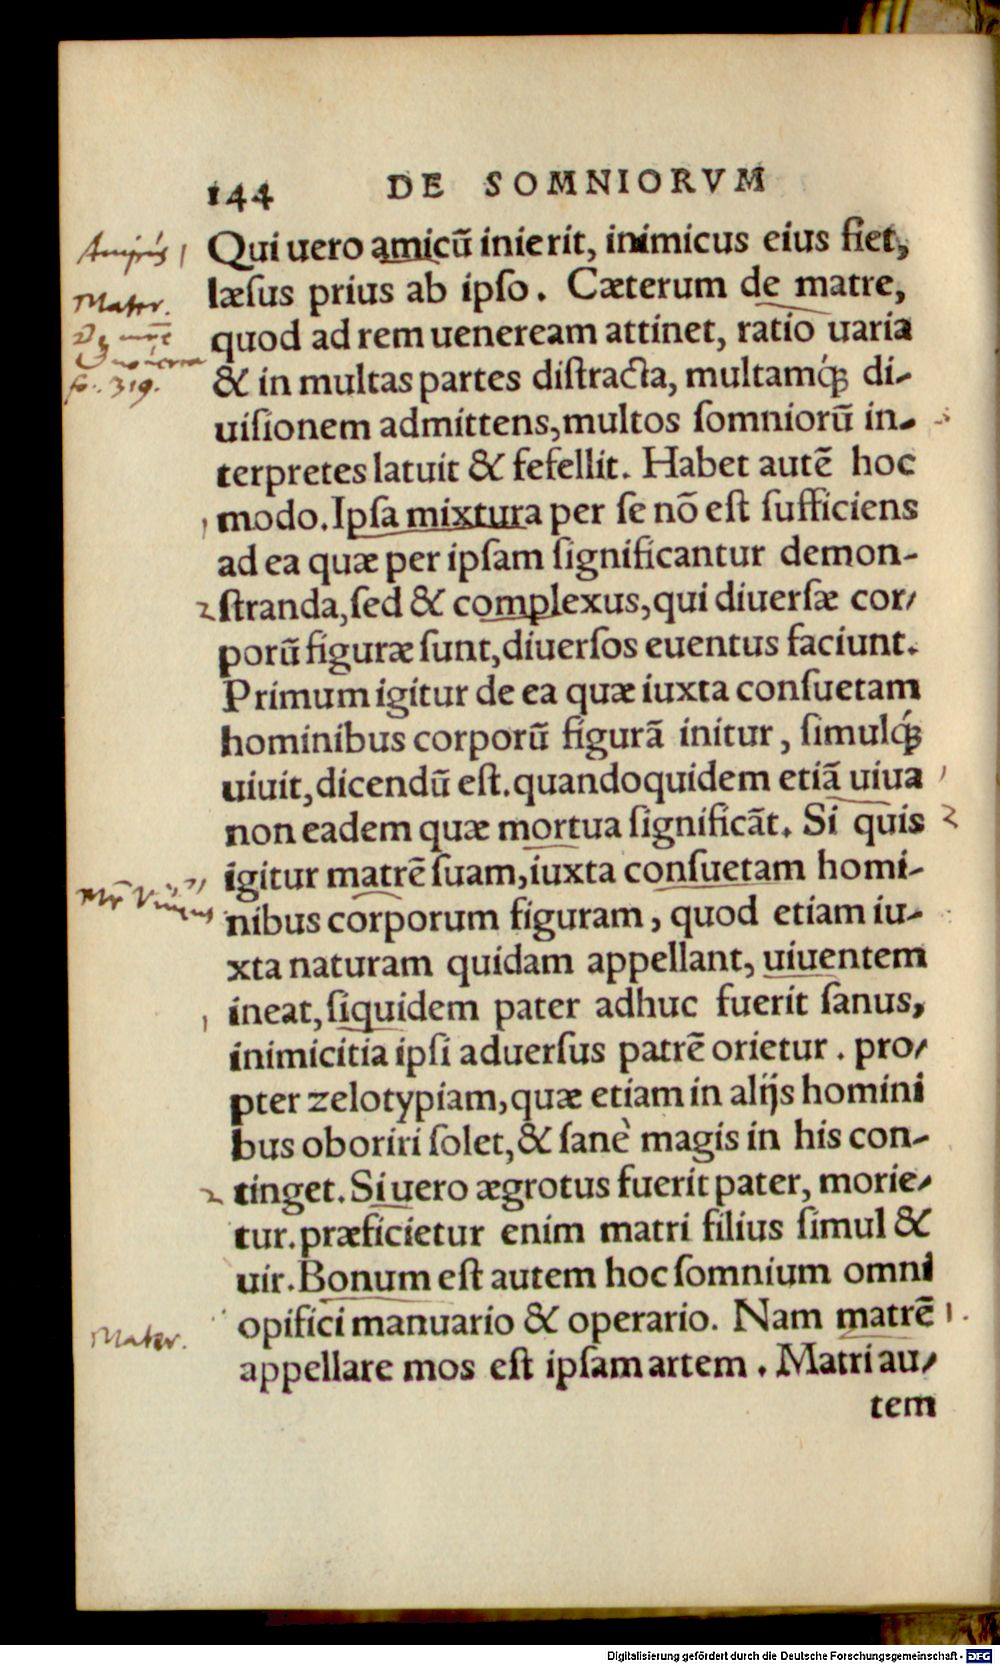 144 DE SOMNIORVM
Qui uero amicũ inierit, inimicus eius fiet,
læsus prius ab ipſo. Cæterum de matre,
quod ad rem ueneream attinet, ratio uaria
& in multas partes diſtracta, multamq́ꝫ di-
uiſionem admittens, multos ſomniorũ in-
terpretes latuit & fefellit. Habet autẽ hoc
modo. Ipſa mixtura per ſe nõ eſt ſufficiens
ad ea quæ per ipſam ſignificantur demon-
ſtranda, ſed & complexus, qui diuerſæ cor-
porũ figuræ ſunt, diuerſos euentus faciunt.
Primum igitur de ea quæ iuxta conſuetam
hominibus corporũ figurã initur, ſimulq́ꝫ
uiuit, dicendũ eſt. quandoquidem etiã uiua
non eadem quæ mortua ſignificãt. Si quis
igitur matrẽ ſuam, iuxta conſuetam homi-
nibus corporum figuram, quod etiam iu-
xta naturam quidam appellant, uiuentem
ineat, ſiquidem pater adhuc fuerit ſanus,
inimicitia ipſi aduerſus patrẽ orietur. pro-
pter zelotypiam, quæ etiam in alijs homini
bus oboriri ſolet, & ſanè magis in his con-
tinget. Si uero ægrotus fuerit pater, morie-
tur. præficietur enim matri filius ſimul &
uir. Bonum eſt autem hoc ſomnium omni
opifici manuario & operario. Nam matrẽ
appellare mos eſt ipſam artem. Matri au-
tem
Mater.
fo. 319.
Mater.
Digitalisierung gefördert durch die Deutsche Forschungsgemeinschaft - DFG